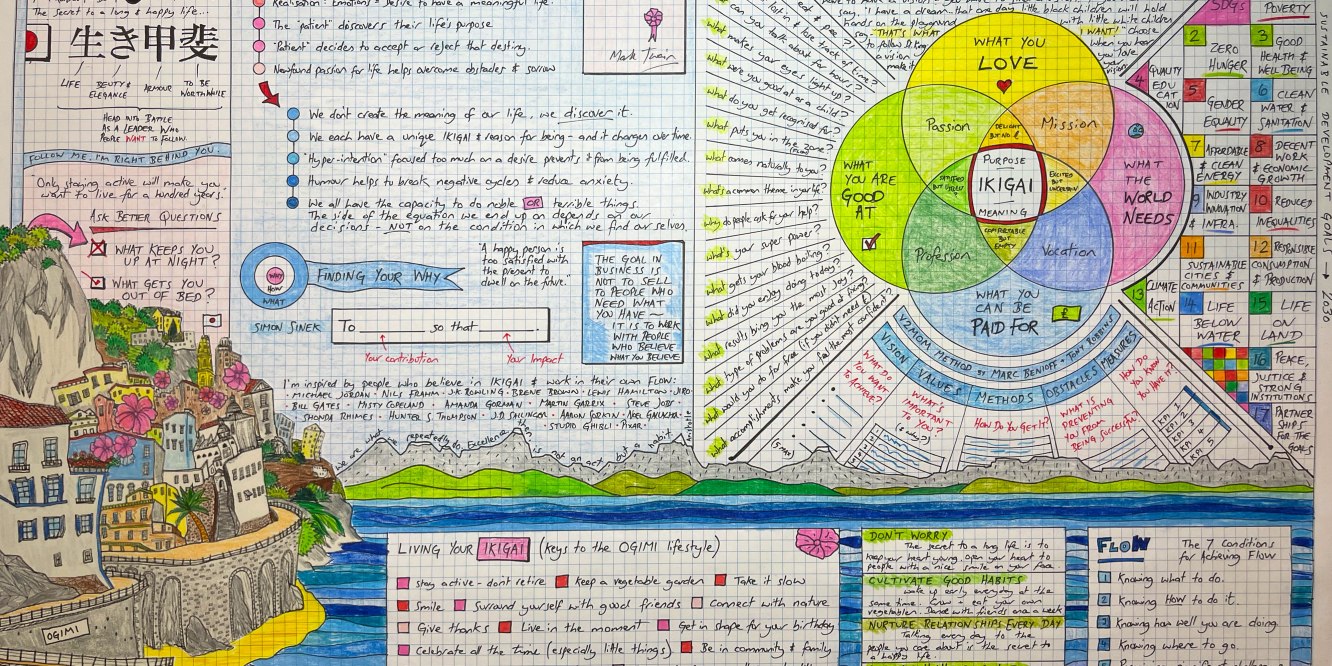 The secret to a long & happy life...
生き甲斐
LIFE
BEUTY &
ELEGANCE
ARMOUR
TO BE
WORTHWHILE
HEAD INTO BATTLE
AS A LEADER WHO
PEOPLE WANT TO FOLLOW.
FOLLOW ME. I'M RIGHT BEHIND YOU.
Only staying active will make you
want to live for a hundred years.
ASK BETTER QUESTIONS
WHAT KEEPS YOU
UP AT NIGHT?
WHAT GETS YOU
OUT OF BED?
OGIMI
Realisation: Emotions = Desire to have a meaningful life.
The "patient" discovers their life's purpose
"Patient" decides to accept or reject that destiny.
Newfound passion for life helps overcome obstacles & sorrow
Mark Twain
We don't create the meaning of our life, we discover it.
We each have a unique IKIGAI & reason for being - and it changes over time.
"Hyper-intention" focused too much on a desire prevents it from being fulfilled.
Humour helps to break negative cycles & reduce anxiety.
We all have the capacity to do noble OR terrible things.
The side of the equation we end up on depends on our
decisions - NOT on the condition in which we find ourselves.
WHY
HOW
WHAT
FINDING YOUR WHY
"A happy person is
too satisfied with
the present to
dwell on the future."
SIMON SINEK
To ______ so that ______.
Your contribution
Your Impact
THE GOAL IN
BUSINESS IS
NOT TO SELL
TO PEOPLE WHO
NEED WHAT
YOU HAVE -
IT IS TO WORK
WITH PEOPLE
WHO BELIEVE
WHAT YOU BELIEVE
I'm inspired by people who believe in IKIGAI & work in their own FLOW:
· MICHAEL JORDAN · NILS FRAHM · J.K. ROWLING · BRENE BROWN · LEWIS HAMILTON · JIRO ·
BILL GATES · MISTY COPELAND · AMANDA GORMAN · MARTIN GARRIX · STEVE JOBS ·
· SHONDA RHIMES · HUNTER S THOMPSON · J.D. SALINGER · AARON SORKIN · AXEL GAUCHA ·
· STUDIO GHIBLI · PIXAR ·
we are what we repeatedly do. Excellence then, is not an act, but a habit
Aristotle
What makes your eyes light up?
What were you good at as a child?
What do you get recognised for?
What puts you in the zone?
(FLOW)
What comes naturally to you?
What's a common theme in your life?
Why do people ask for your help?
What's your super power?
What gets your blood boiling?
What did you enjoy doing today?
What results bring you the most joy?
What type of problems are you good @ fixing?
What would you do for free (if you didn't need it)?
What accomplishments make you feel the most confident?
say, 'I have a dream - that one day little black children will hold
hands on the playground
with little white children
"THAT'S WHAT
I WANT!"
WHAT YOU
LOVE
Passion
DELIGHT
BUT NO £
Mission
PURPOSE
IKIGAI
MEANING
WHAT
YOU ARE
GOOD
AT
SATISFIED
BUT USELESS
EXCITED
BUT
UNCERTAIN
WHAT
THE
WORLD
NEEDS
Profession
COMFORTABLE
BUT
EMPTY
Vocation
WHAT YOU
CAN BE
PAID FOR
£
V2MOM METHOD BY MARC BENIOFF · TONY ROBBINS
VISION
VALUES
METHODS
OBSTACLES
MEASURES
WHAT DO
YOU WANT
TO ACHIEVE?
WHAT'S
IMPORTANT
TO YOU?
(& why?)
HOW DO YOU GET IT?
WHAT IS
PREVENTING
YOU FROM
BEING SUCCESSFUL?
HOW DO
YOU KNOW
YOU
HAVE IT?
KPI 1
KPI 2
KPI 3
KPI 4
KPI 5
SDGs
POVERTY
2
ZERO
HUNGER
3
GOOD
HEALTH &
WELL BEING
4
QUALITY
EDU
CAT
ION
5
GENDER
EQUALITY
6
CLEAN
WATER &
SANITATION
7
AFFORDABLE
& CLEAN
ENERGY
8
DECENT
WORK
& ECONOMIC
GROWTH
9
INDUSTRY
INNOVATION
& INFRA.
10
REDUCED
INEQUALITIES
11
SUSTAINABLE
CITIES &
COMMUNITIES
12
RESPONSIBLE
CONSUMPTION
& PRODUCTION
13
CLIMATE
ACTION
14
LIFE
BELOW
WATER
15
LIFE
ON
LAND
16
PEACE,
JUSTICE &
STRONG
INSTITUTIONS
17
PARTNER
SHIPS
FOR THE
GOALS
SUSTAINABLE DEVELOPMENT GOALS → 2030
LIVING YOUR IKIGAI (keys to the OGIMI lifestyle)
Stay active - dont retire
Keep a vegetable garden
Take it slow
Smile
Surround yourself with good friends
Connect with nature
Give thanks
Live in the moment
Get in shape for your birthday
Celebrate all the time (especially little things)
Be in community & family
DON'T WORRY
The secret to a long life is to
keep your heart young. Open your heart to
people with a nice smile on your face
CULTIVATE GOOD HABITS
wake up early everyday at the
same time. Grow & eat your own
vegetables. Dance with friends once a week
NURTURE RELATIONSHIPS EVERY DAY
Talking every day to the
people you care about is the secret to
a happy life.
FLOW
The 7 Conditions
for Achieving Flow
1 Knowing what to do.
2 Knowing HOW to do it.
3 Knowing how well you are doing.
4 Knowing where to go.